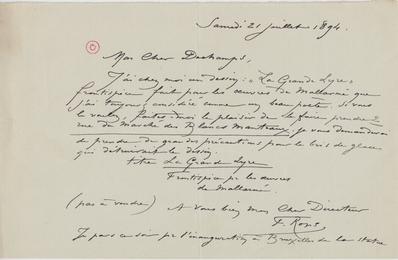 Samedi 21 juillet 1894.
Mon Cher Deschamps,
J'ai chez moi un dessin : « La Grande Lyre »
frontispice fait pour les œuvres de Mallarmé que
j'ai toujours considéré comme un beau poète. Si vous
le voulez, faites-moi le plaisir de le faire prendre 2
rue du Marché des Blancs Manteaux. Je vous demanderai
de prendre de grandes précautions pour le bris de glace
qui détruirait le dessin.
titre La Grande Lyre
Frontispice pr les œuvres
de Mallarmé.
(pas à vendre) A vous bien mon Cher Directeur
F. Rops
Je pars ce soir pr l'inauguration à Bruxelles de la